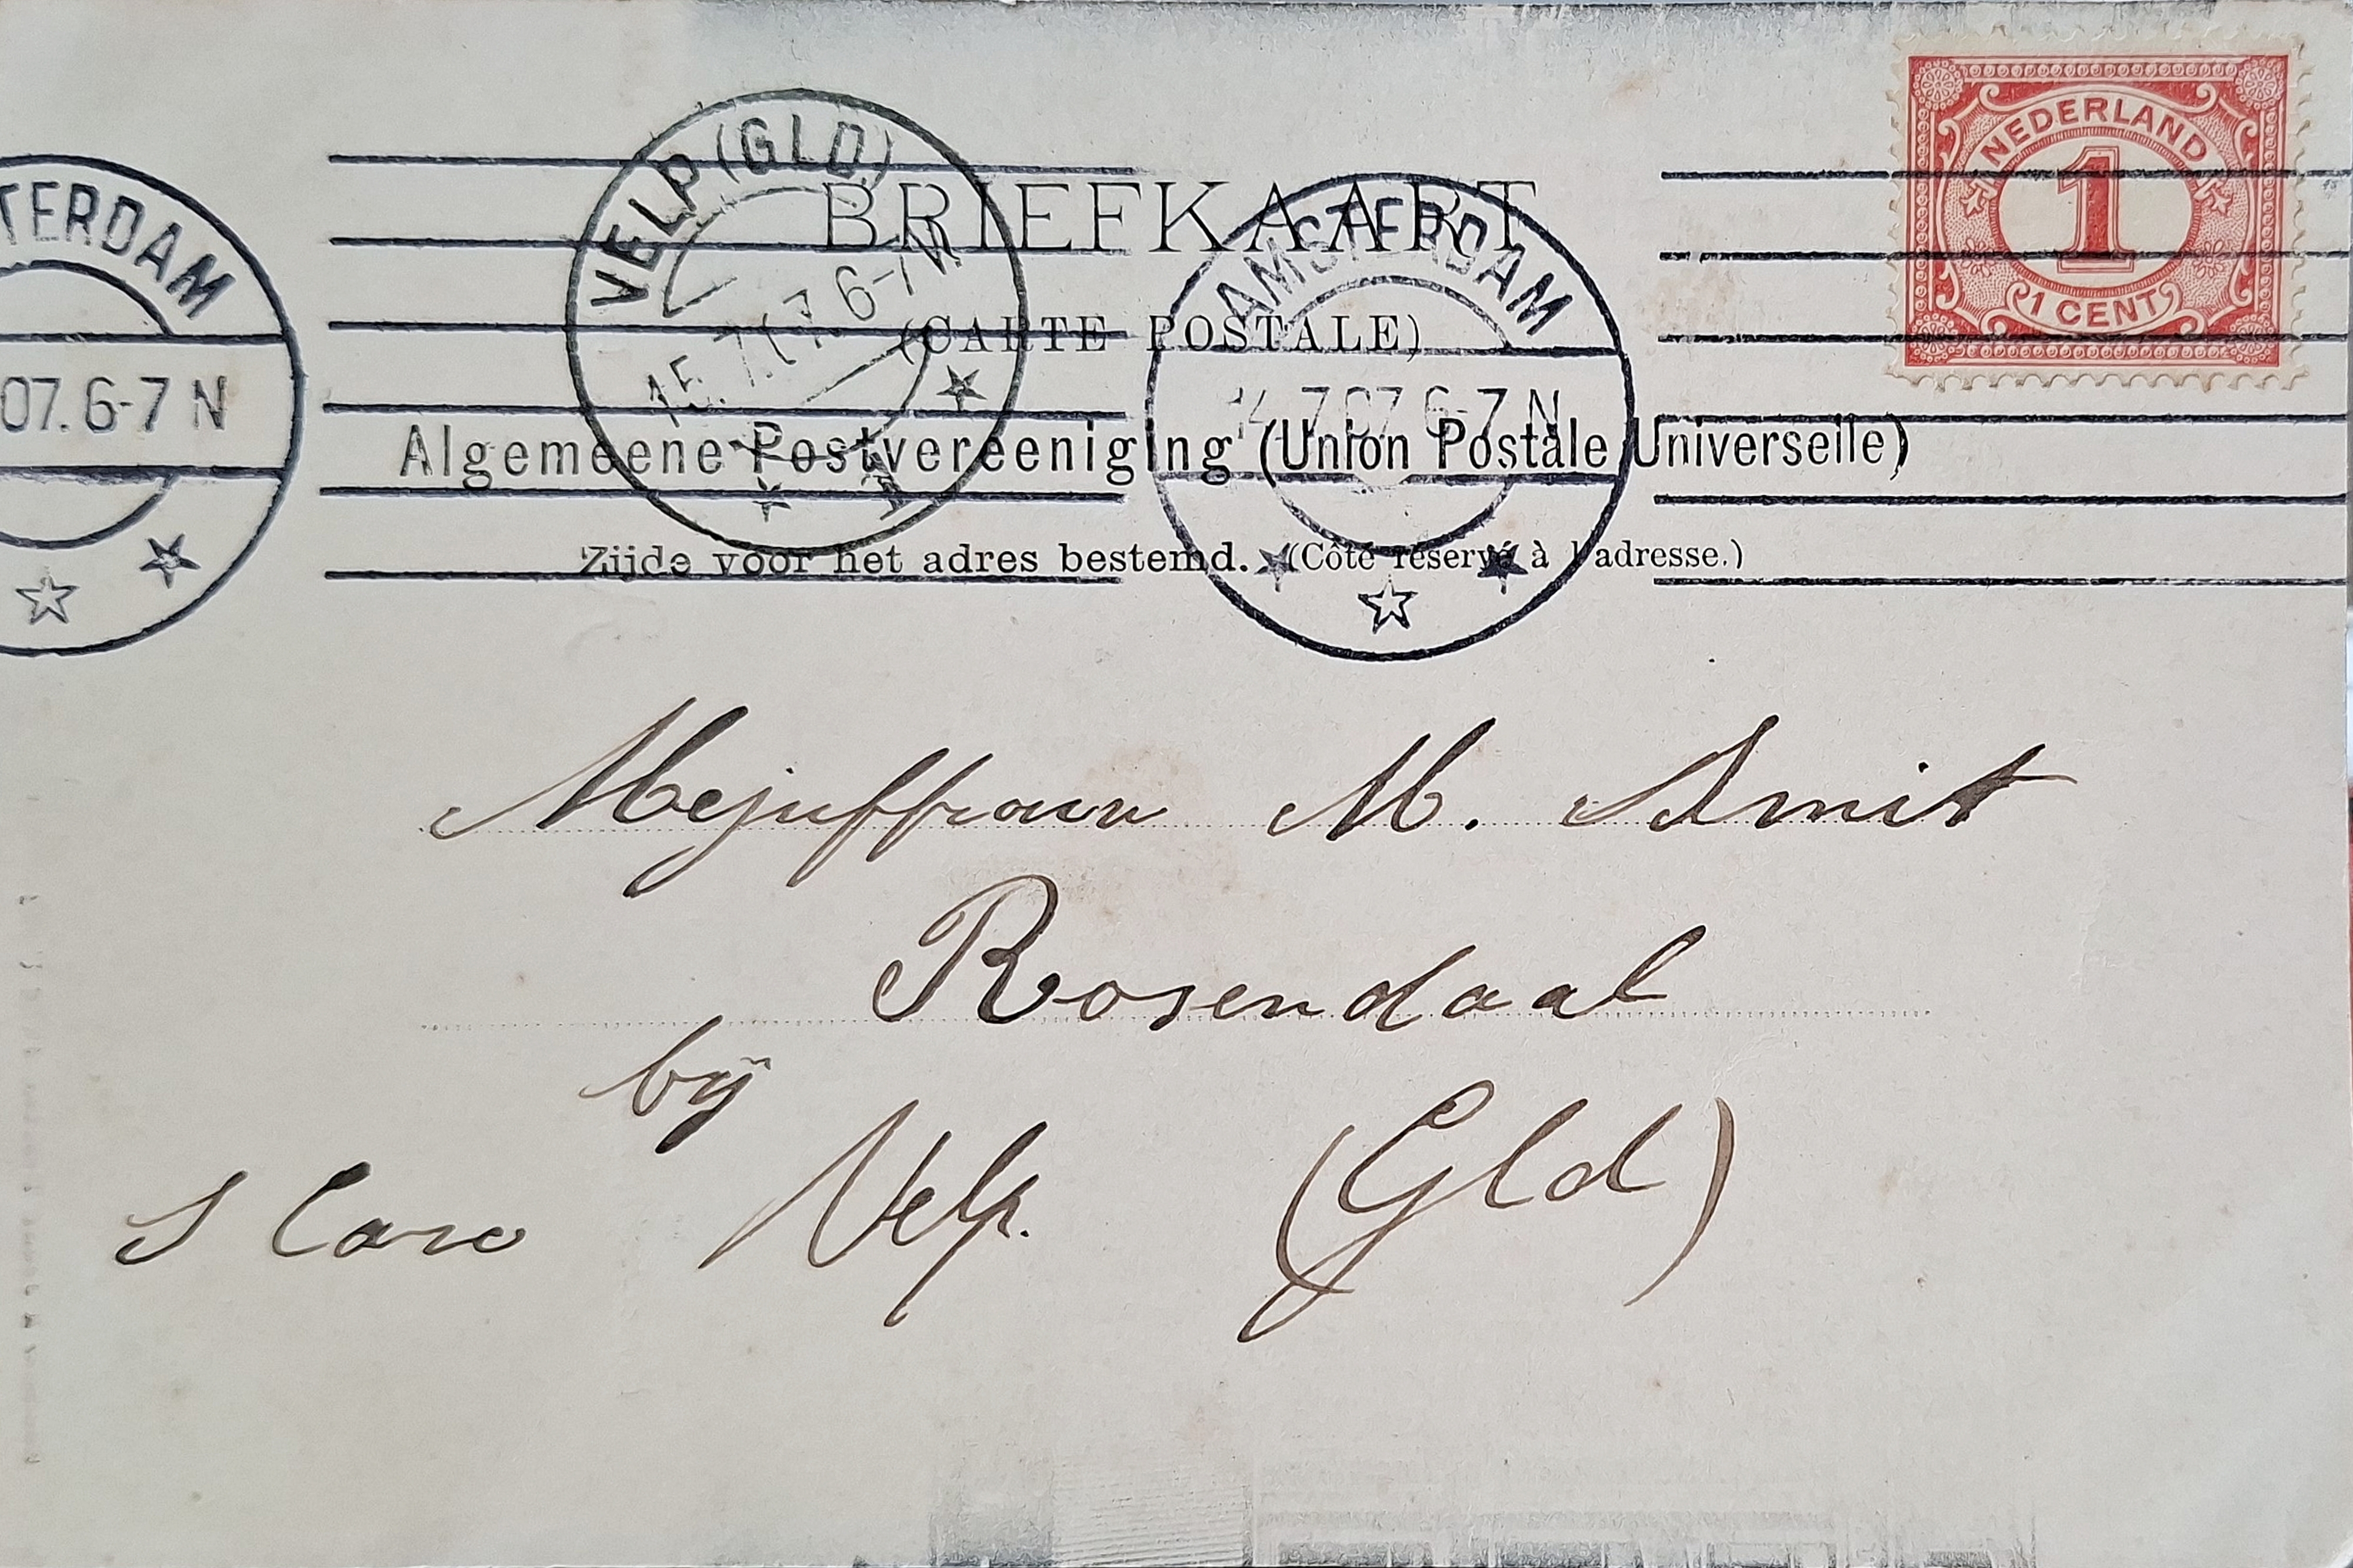 BRIEFKAART
(CARTE POSTALE)
Algemeene Postvereeniging (Union Postale Universelle)
Zijde voor het adres bestemd. (Côté réservé à l'adresse.)
NEDERLAND
1
1 CENT
TERDAM
07. 6-7 N
VELP (GLD.)
15.7.07. 6-7 N
1
AMSTERDAM
14.7.07 6-7 N
Mejuffrouw M. Smit
Rosendaal
bij
Velp. (Gld)